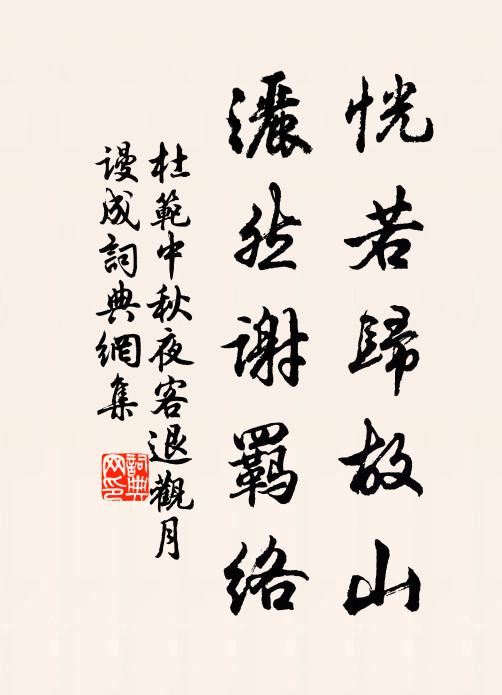 恍若歸故山
灑然謝羈絡
杜範中秋夜客退觀月
謾成詞典網集
詞典网印